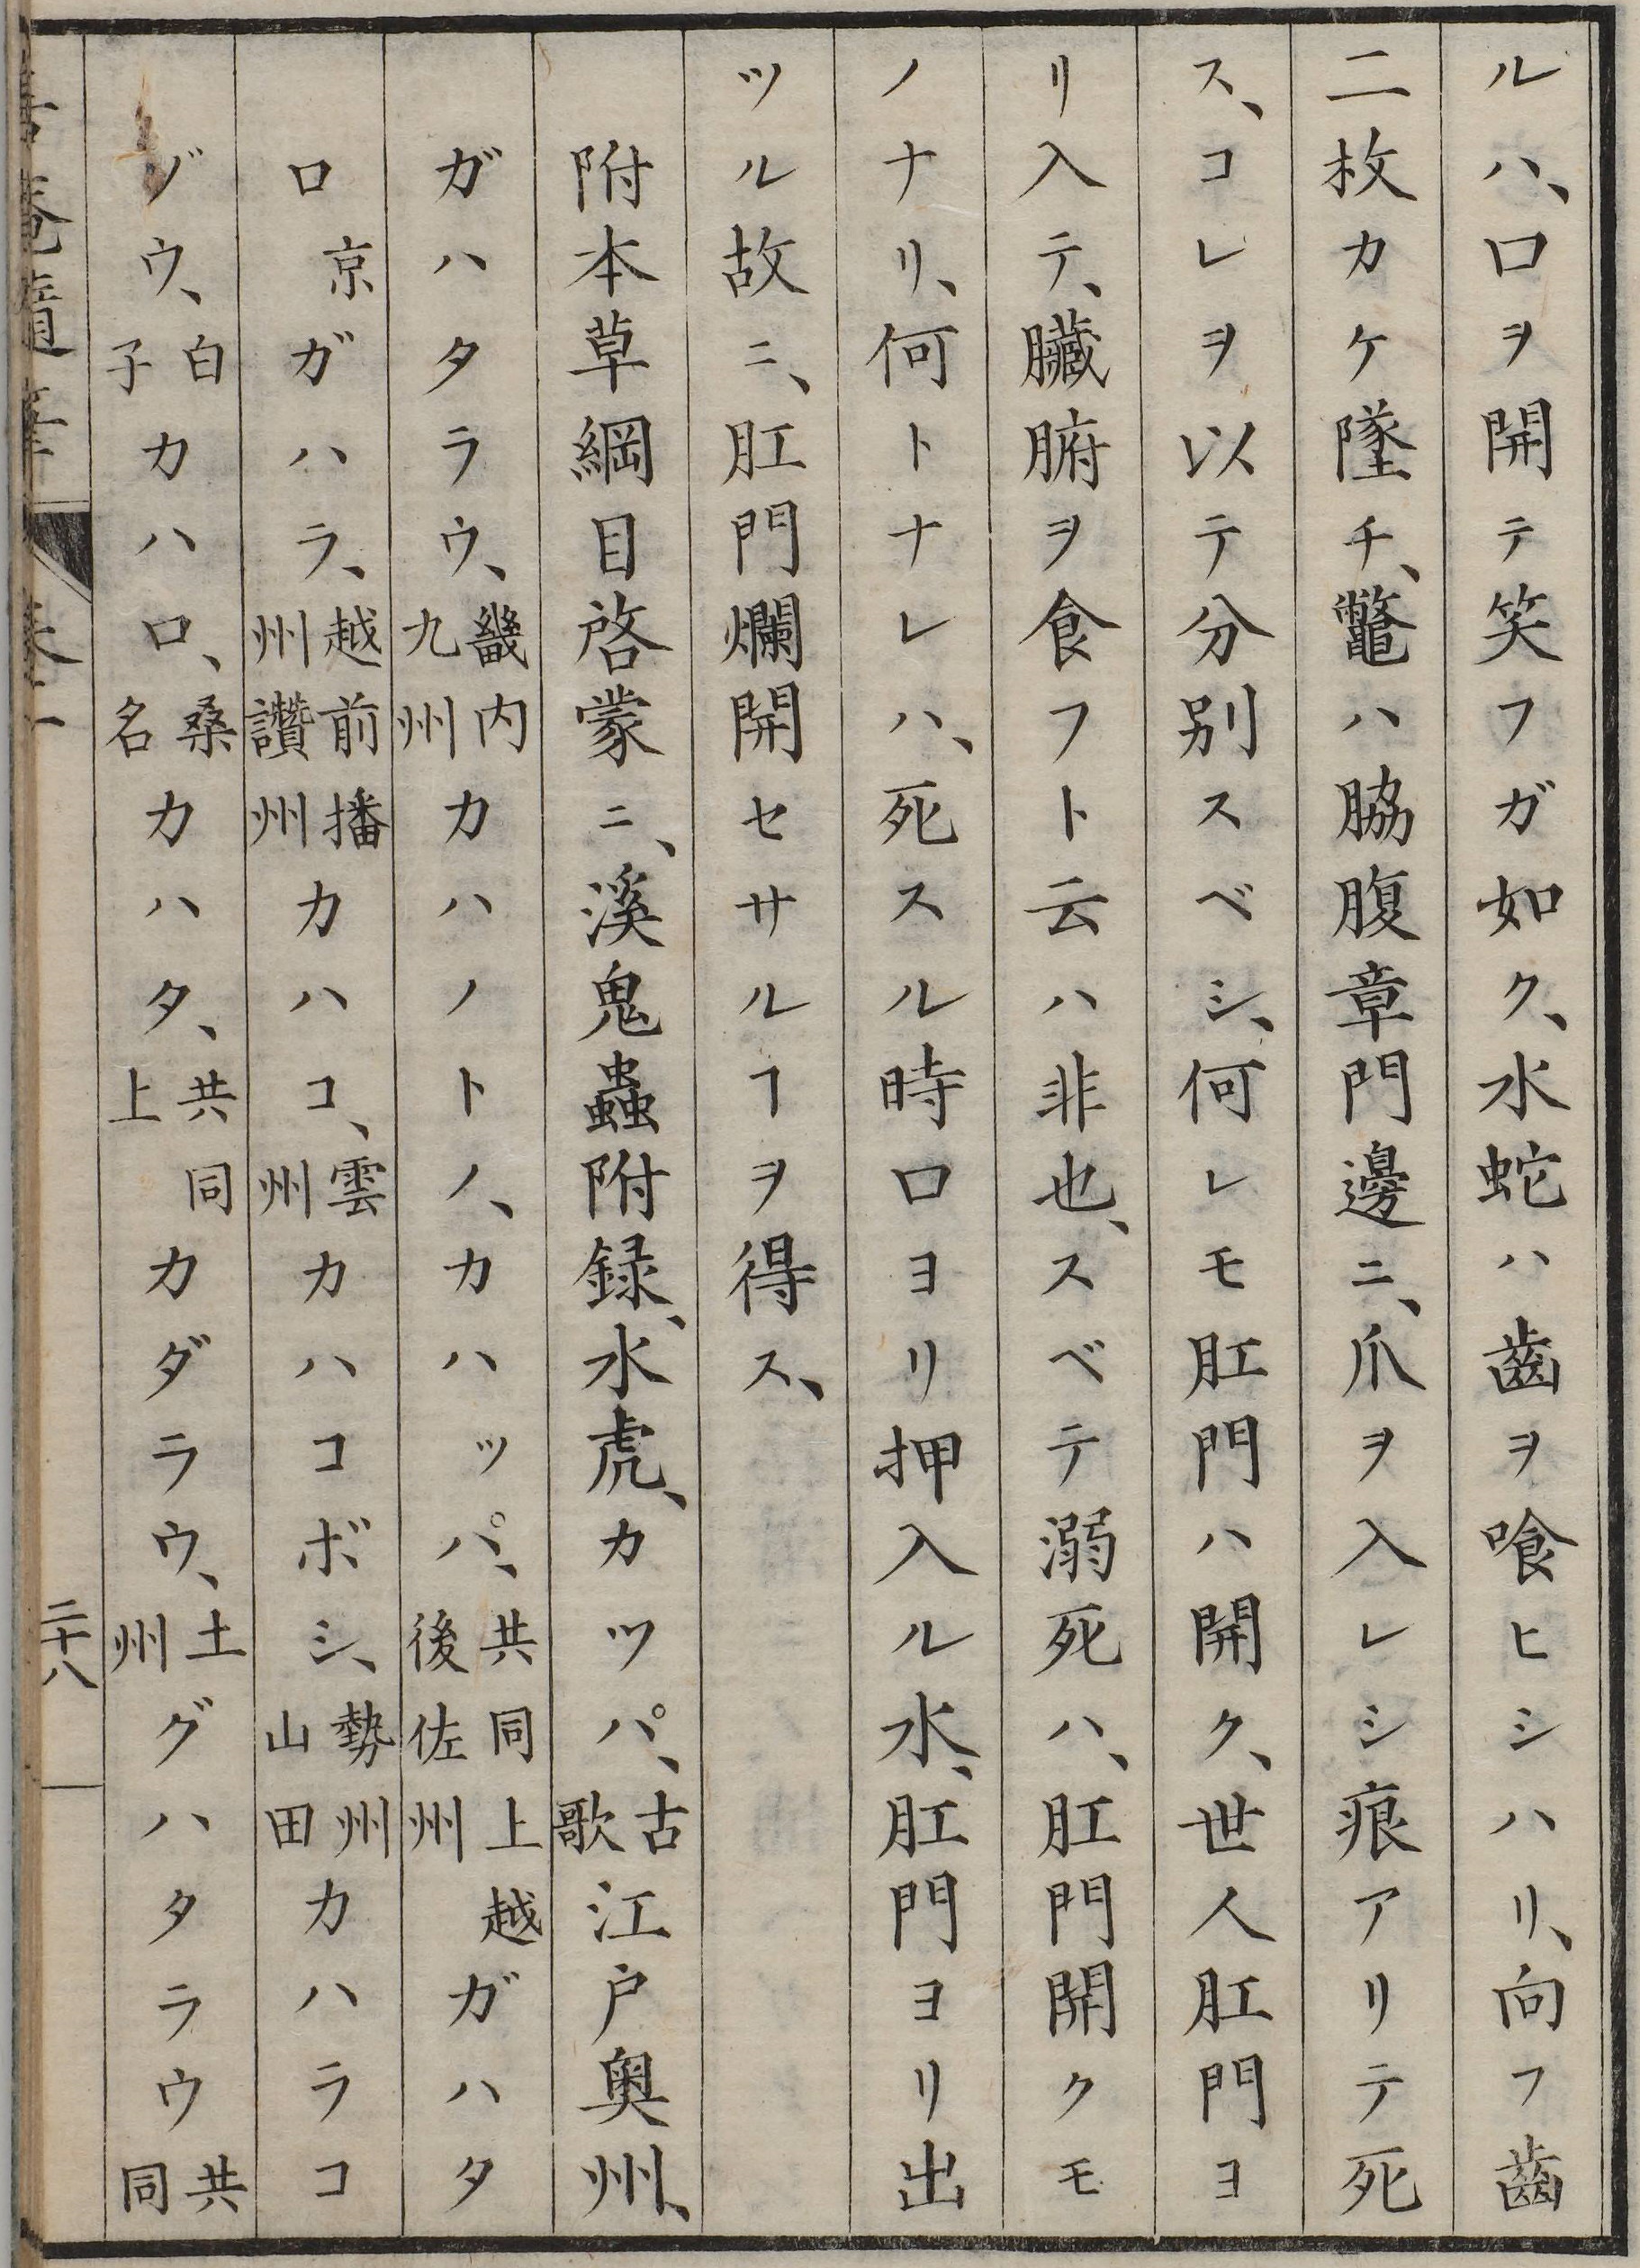 ルハ、口ヲ開テ笑フガ如ク、水蛇ハ齒ヲ喰ヒシハリ、向フ齒
二枚カケ墜チ、鼈ハ脇腹章門邊ニ、爪ヲ入レシ痕アリテ死
ス、コレヲ以テ分別スベシ、何レモ肛門ハ開ク、世人肛門ヨ
リ入テ、臟腑ヲ食フト云ハ非也、スベテ溺死ハ、肛門開クモ
ノナリ、何トナレハ、死スル時口ヨリ押入ル水、肛門ヨリ出
ツル故ニ、肛門爛開セサルヿヲ得ス、
附本草綱目啓蒙ニ、溪鬼蟲附録、水虎、カツパ、古歌江戸奥州、
ガハタラウ、畿内九州カハノトノ、カハッパ、共同上後佐州越ガハタ
ロ京ガハラ、越前播州讚州カハコ、雲州カハコボシ、勢州山田カハラコ
ゾウ、白子カハロ、桑名カハタ、共上同カダラウ、土州グハタラウ共同
二十八